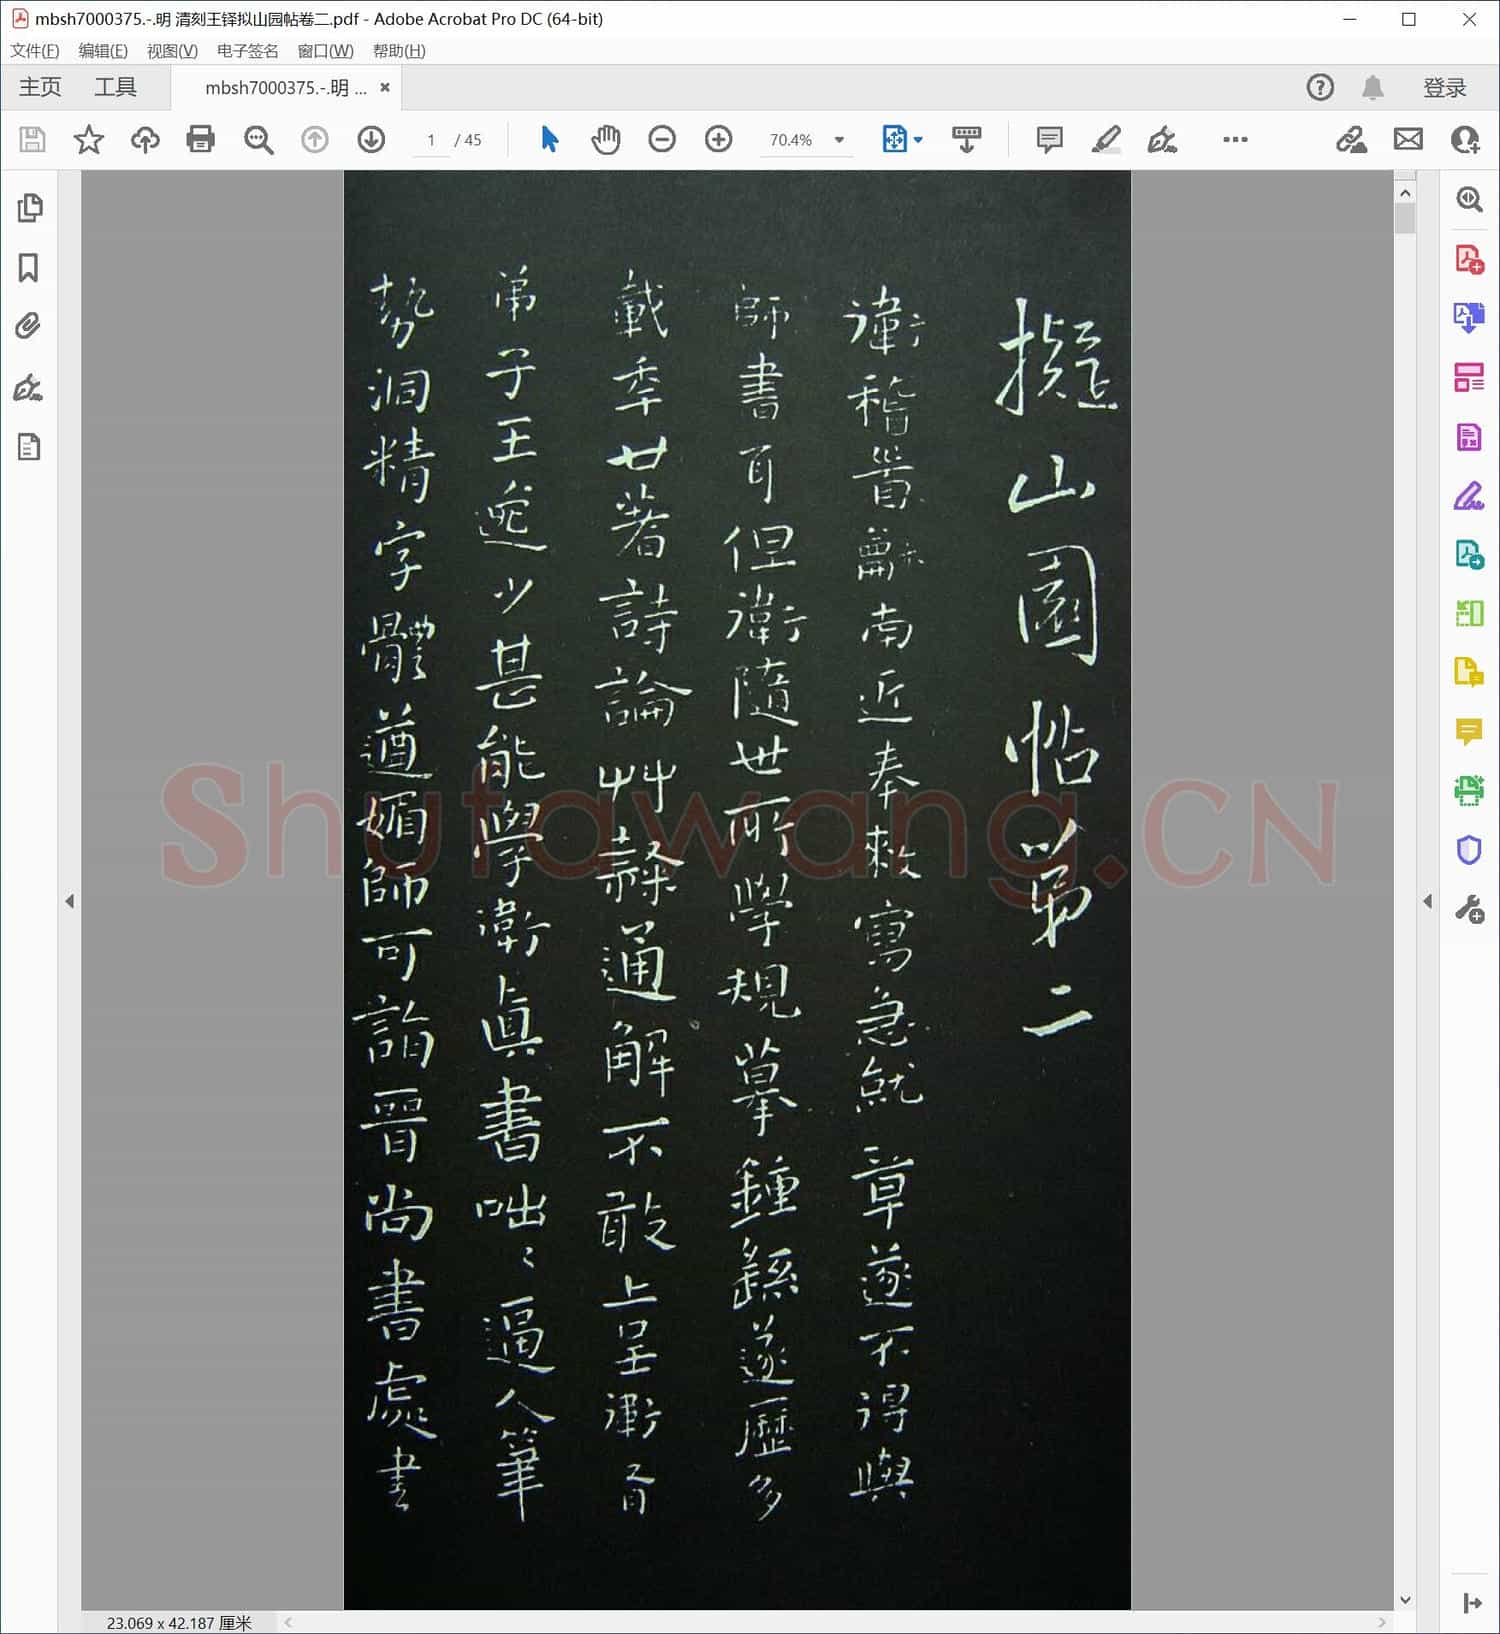 mbsh7000375.-.明 清刻王铎拟山园帖卷二.pdf - Adobe Acrobat Pro DC (64-bit)
文件(F) 编辑(E) 视图(V) 电子签名 窗口(W) 帮助(H)
主页 工具 mbsh7000375.-.明 ... × 登录
1 / 45 70.4%
擬山園帖第二
衛稽首龢南近奉敕寫急就章遂不得與
師書耳但衛隨世所學規摹鍾繇遂歷多
載年廿著詩論艸隸通解不敢上呈衛有
弟子王逸少甚能學衛眞書咄〻逼人筆
勢洞精字體遒媚師可詣晉尚書處書
Shufawang.CN
23.069 x 42.187 厘米